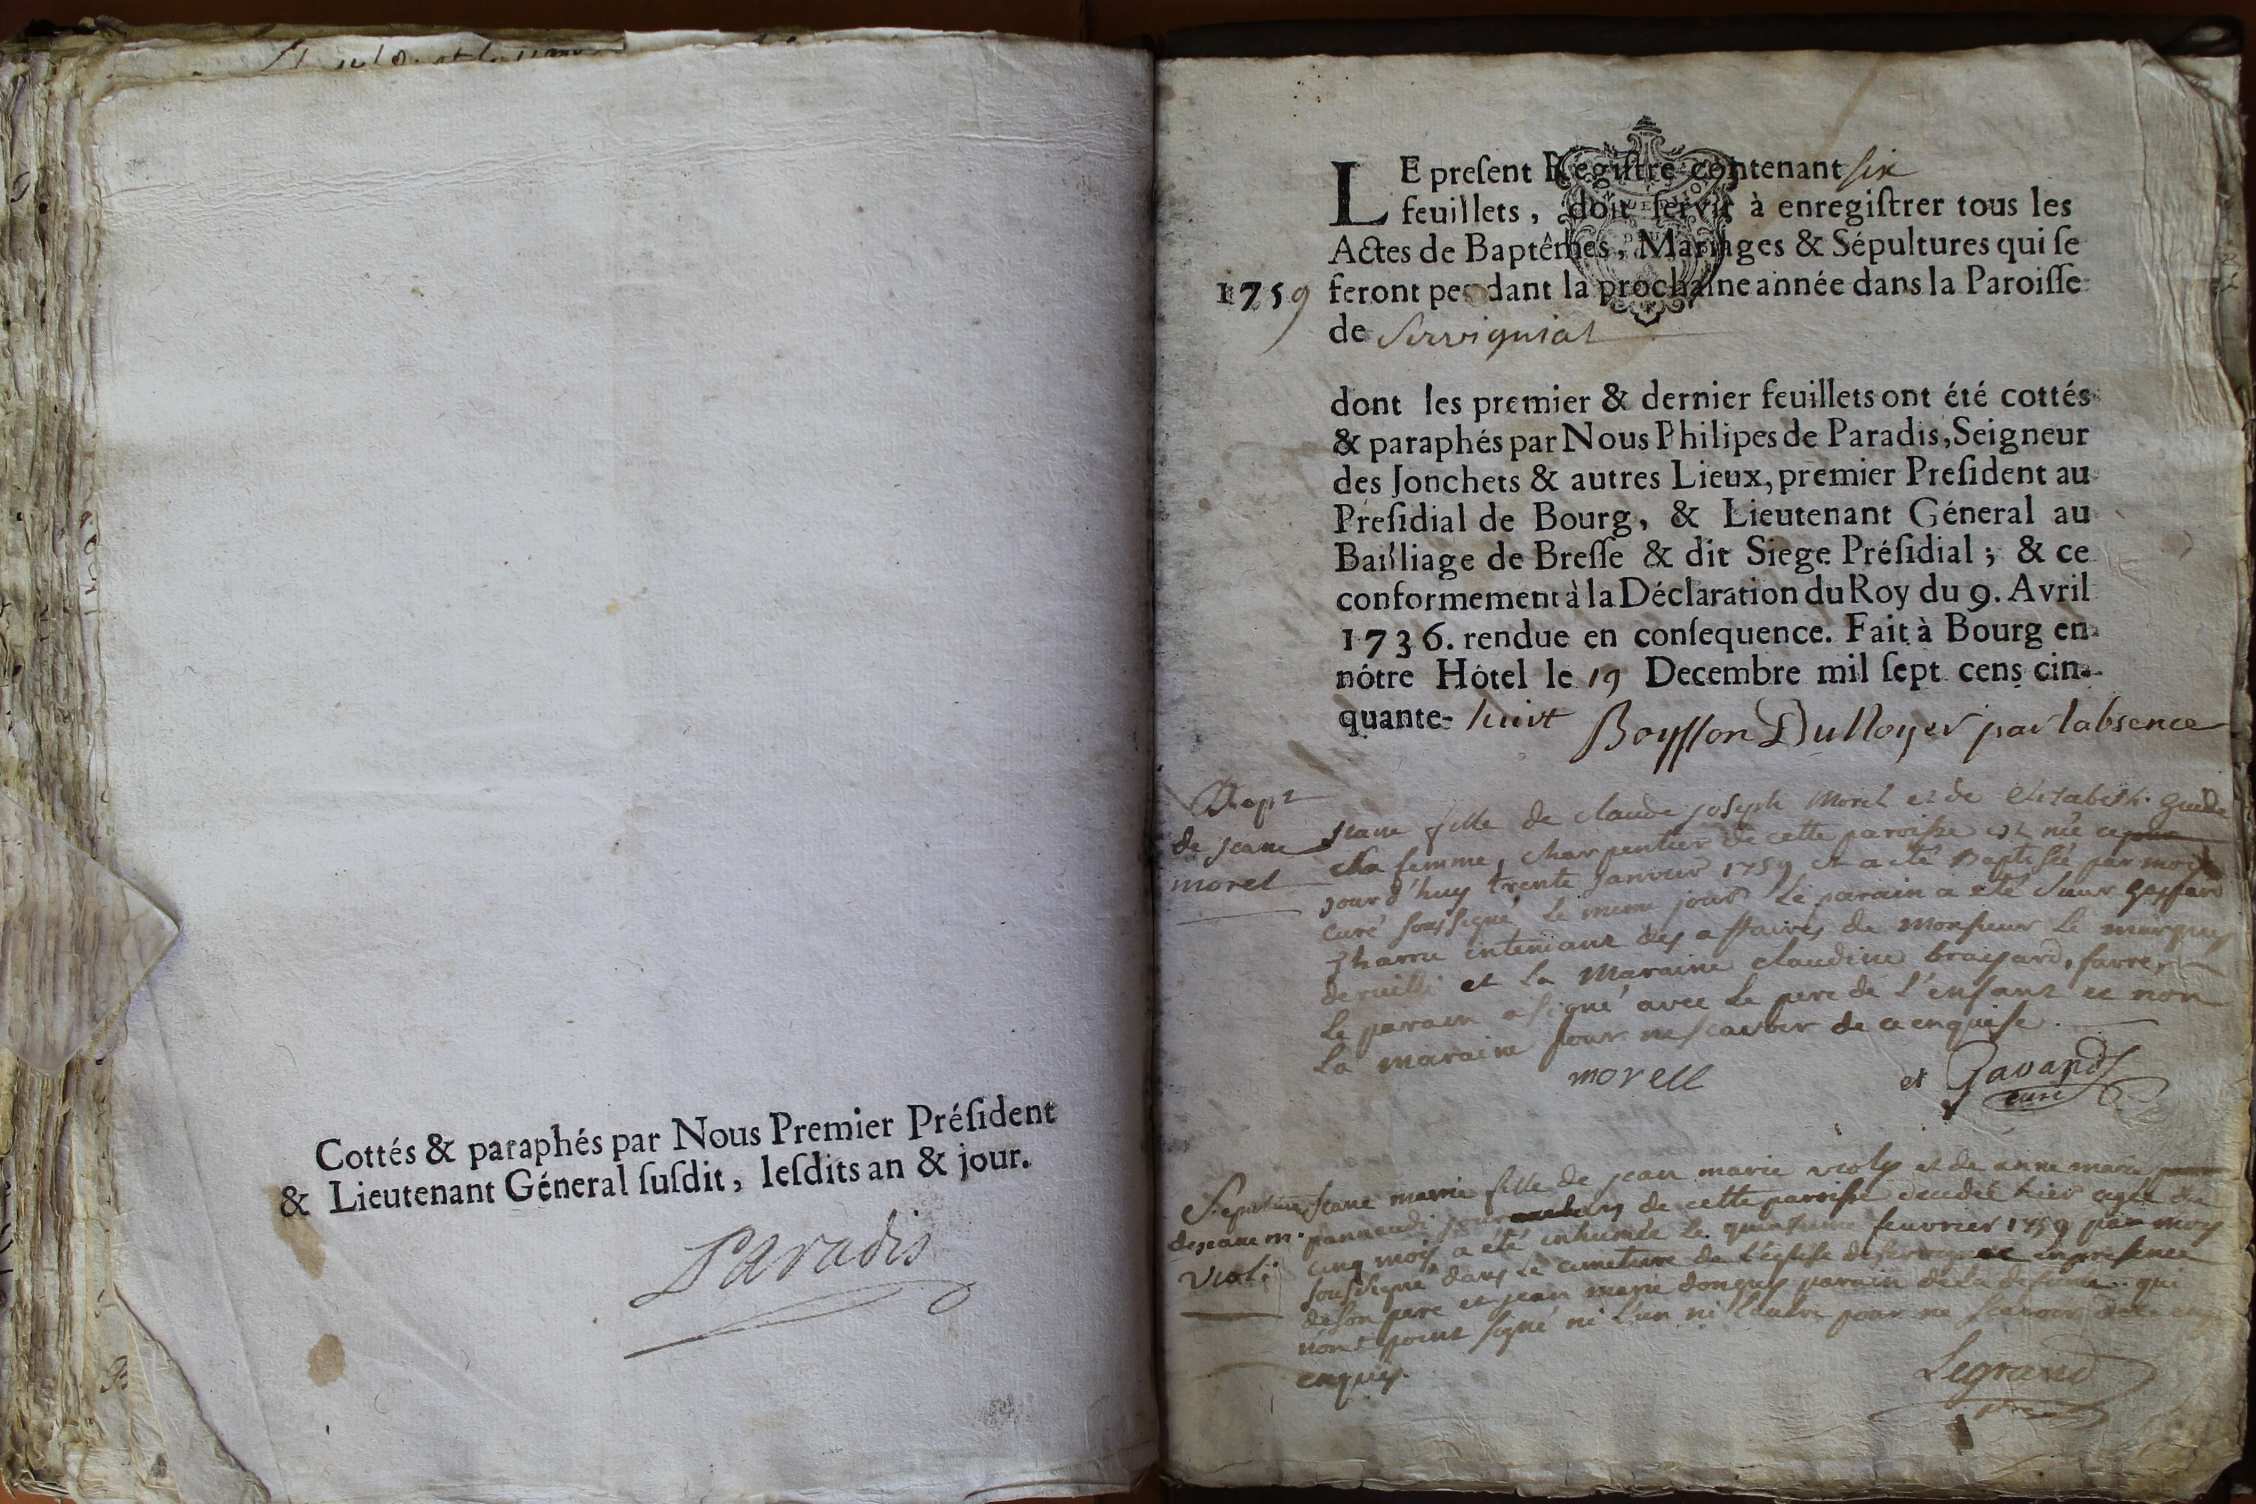 Cottés & paraphés par Nous Premier Préſident
& Lieutenant Géneral ſuſdit, leſdits an & jour.
Paradis
LE preſent Regiſtre contenant six
feuillets, doit ſervir à enregiſtrer tous les
Actes de Baptêmes, Mariages & Sépultures qui ſe
1759 feront pendant la prochaine année dans la Paroiſſe
de Servignat
dont les premier & dernier feuillets ont été cottés
& paraphés par Nous Philipes de Paradis, Seigneur
des Jonchets & autres Lieux, premier Preſident au
Preſidial de Bourg, & Lieutenant Géneral au
Bailliage de Breſſe & dit Siege Préſidial; & ce
conformement à la Déclaration du Roy du 9. Avril
1736. rendue en conſequence. Fait à Bourg en
nôtre Hôtel le 19 Decembre mil ſept cens cin-
quante- huit Boysson Dunoyer par labsence
Bapt
de jeane
morel
jeane fille de claude joseph Morel et de Elizabeth
sa femme, charpentier de cette paroisse est née ce
jourd'huy trente janvier 1759 et a eté Baptisée par moy
curé soussigné le meme jour le parain a eté sieur gaspard
intendant des affaires de Monsieur le marquis
et la Maraine claudine
le parain a signé avec le pere de l'enfant et non
la maraine pour ne scavoir de ce enquise
morell et Gavand
curé
Sepulture
de jeane m.
Violi
jeane marie fille de jean marie violy et de anne marie
de cette paroisse decedée hier agée de
cinq mois a été inhumée le quinzieme fevvrier 1759 par moy
soussigné dans le cimetiere de l'eglise de servignat en presence
de son pere et jean marie parain de la defunte qui
n'ont point signé ni l'un ni l'autre pour ne scavoir
enquis.
Legrand